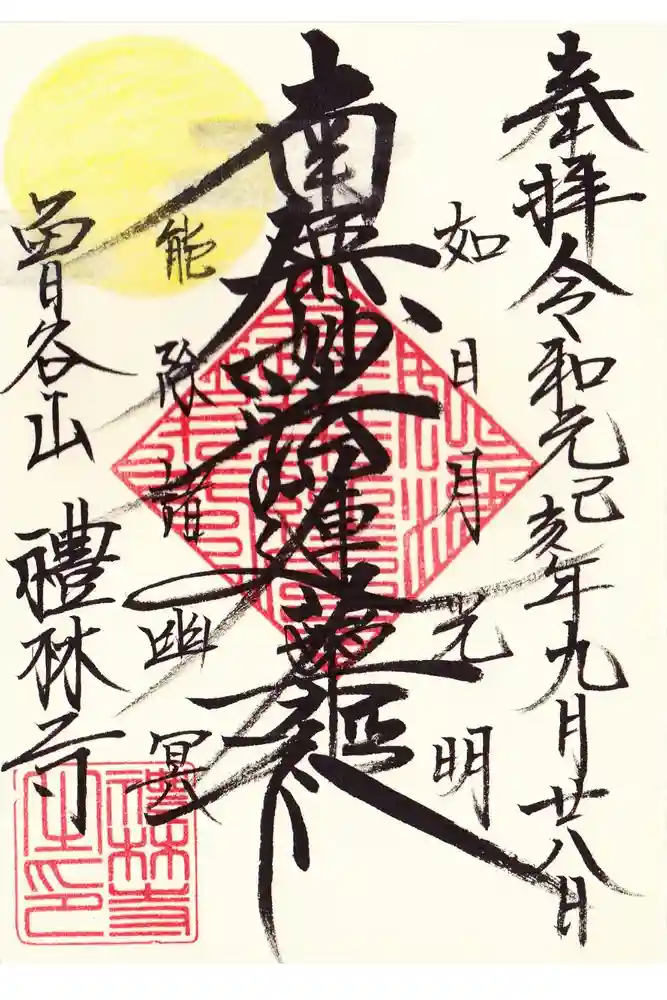 奉拝 令和元己亥年九月廿八日
如日月光明
南無妙法蓮華經
能除諸幽冥
曽谷山 禮林寺
禮林寺